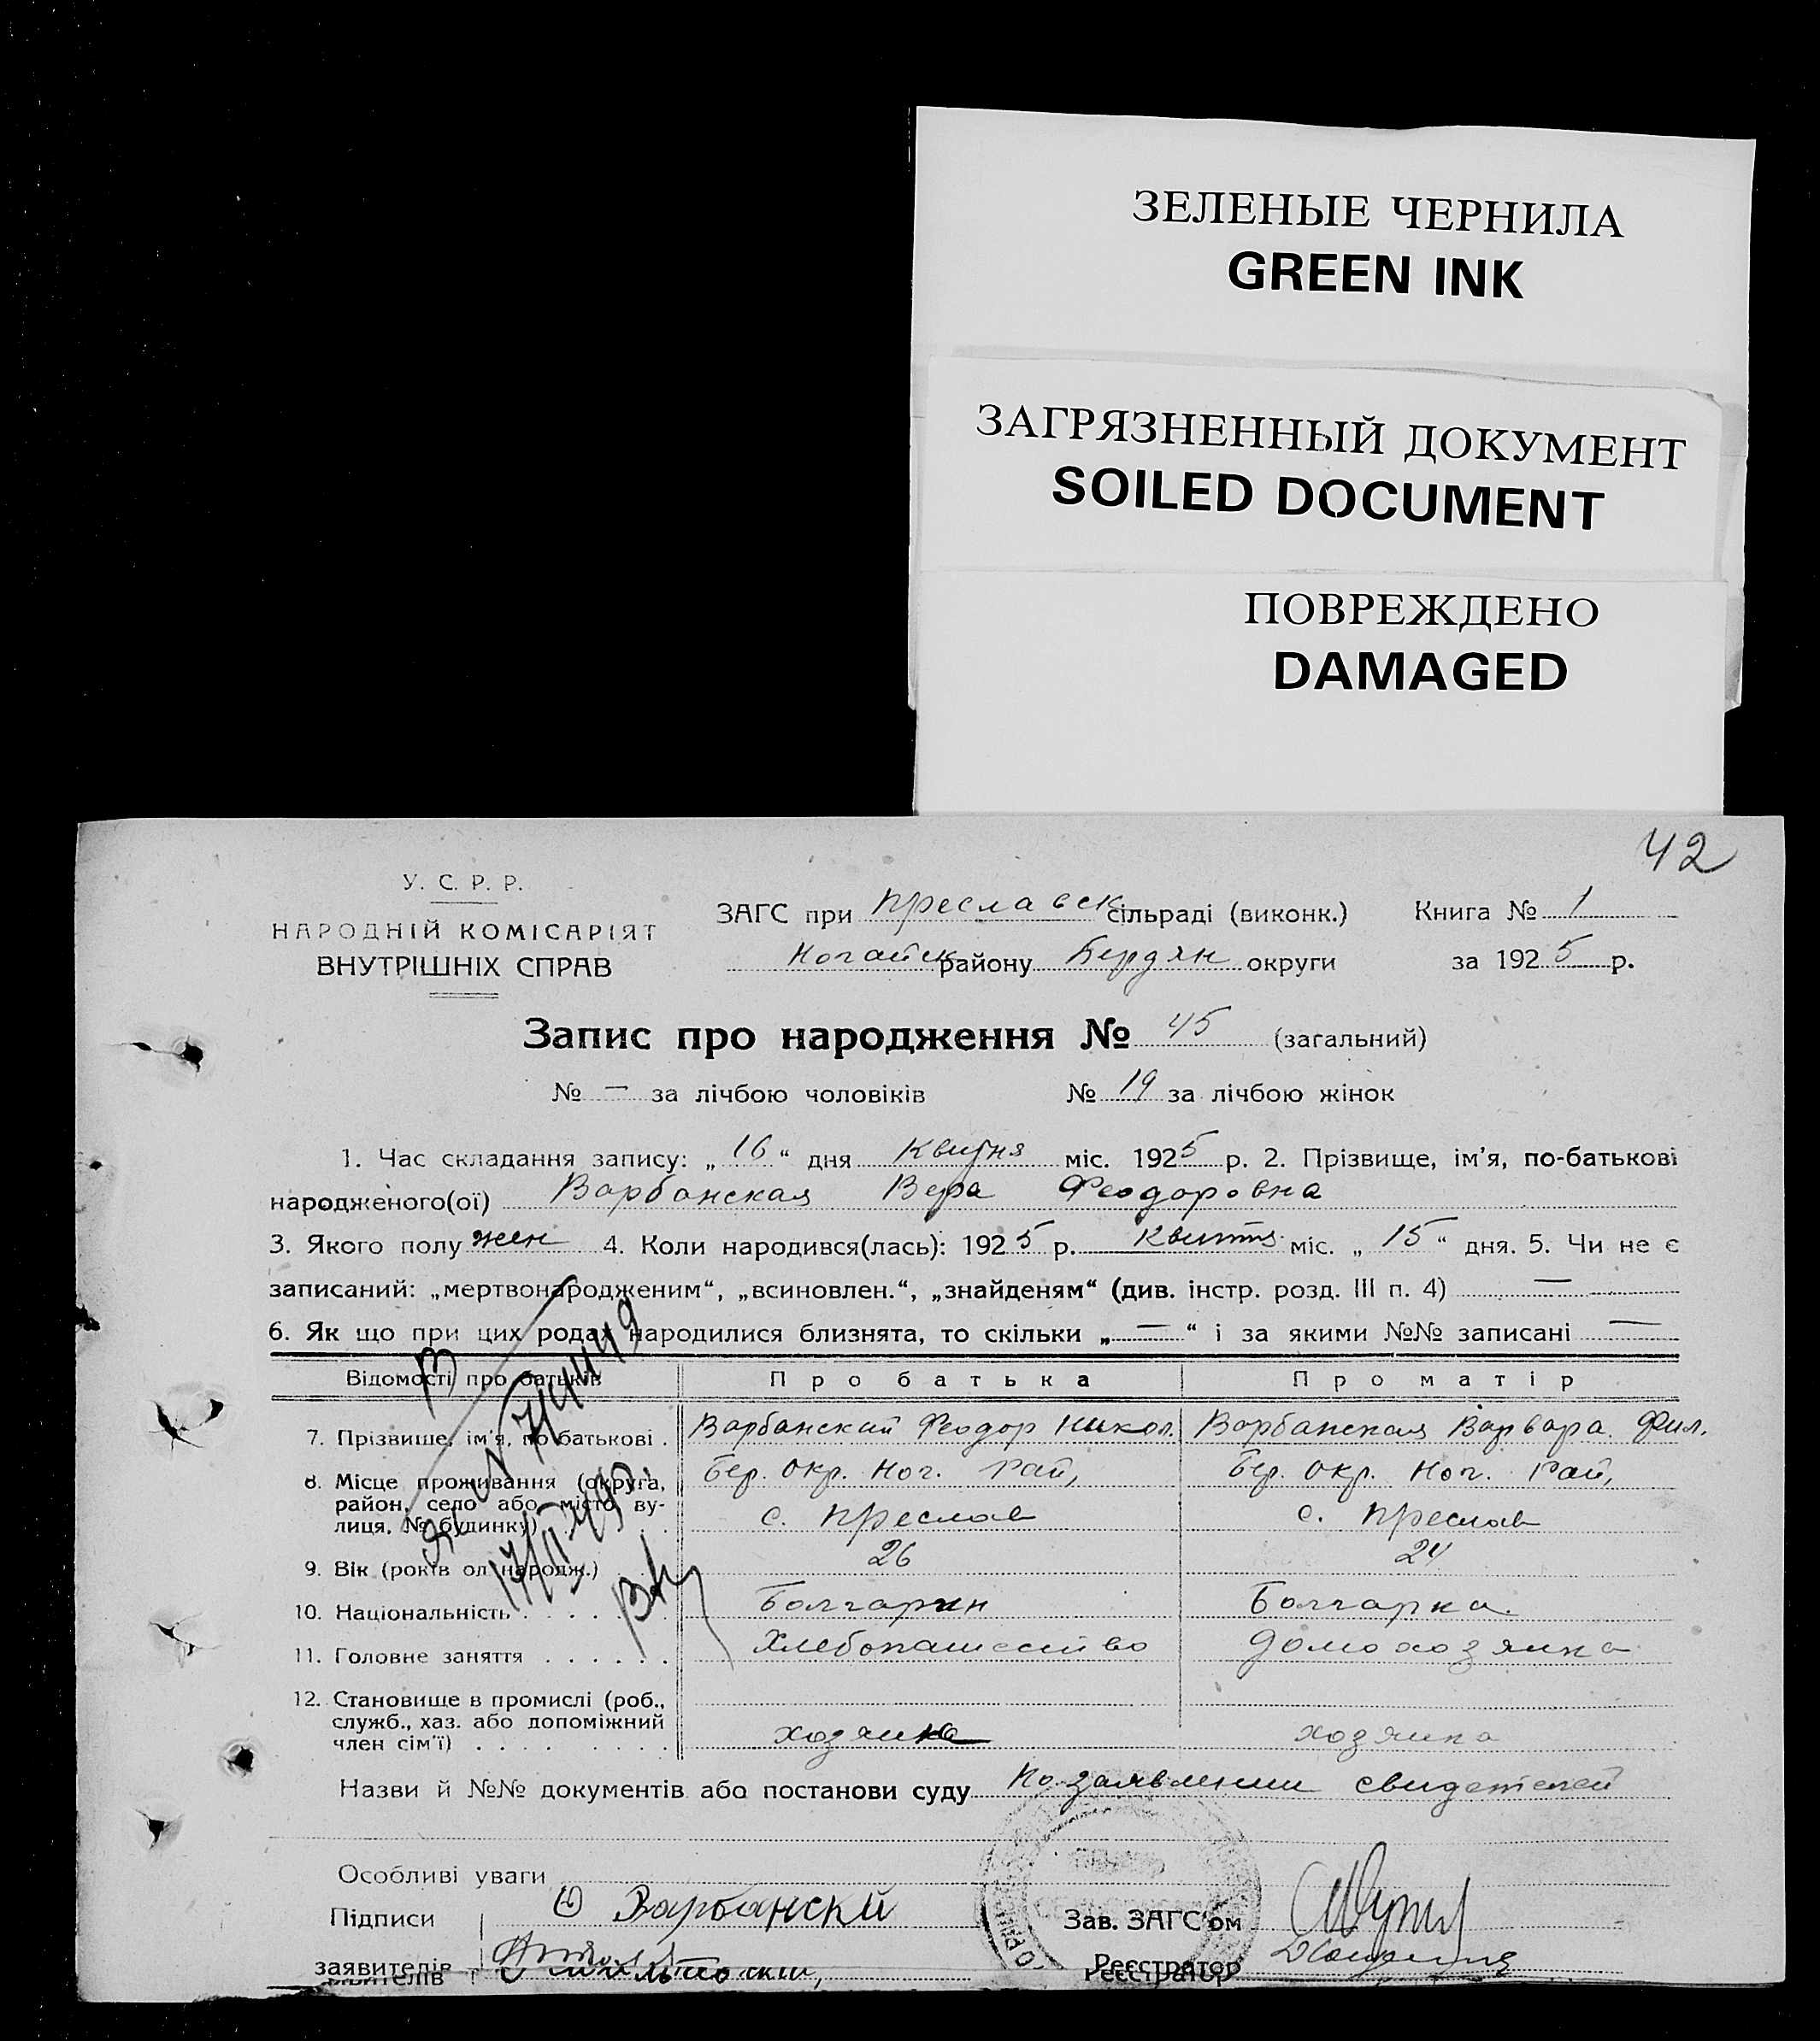 ЗЕЛЕНЫЕ ЧЕРНИЛА
GREEN INK
ЗАГРЯЗНЕННЫЙ ДОКУМЕНТ
SOILED DOCUMENT
ПОВРЕЖДЕНО
DAMAGED
42
У. С. Р. Р.
НАРОДНІЙ КОМІСАРІЯТ
ВНУТРІШНІХ СПРАВ
ЗАГС при Преславск сільраді (виконк.) Книга № 1
Ногайск району Бердян округи за 1925 р.
Запис про народження № 45 (загальний)
№ — за лічбою чоловіків № 19 за лічбою жінок
1. Час складання запису: „16“ дня Квитня міс. 1925 р. 2. Прізвище, ім’я, по-батькові
народженого(ої) Варбанская Вера Феодоровна
3. Якого полу жен 4. Коли народився(лась): 1925 р. Квитня міс. „15“ дня. 5. Чи не є
записаний: „мертвонародженим“, „всиновлен.“, „знайденям“ (див. інстр. розд. III п. 4) —
6. Як що при цих родах народилися близнята, то скільки „—“ і за якими №№ записані —
Відомості про батьків Про батька Про матір
7. Прізвише, ім’я, по батькові . Варбанский Феодор Никол. Варбанская Варвара Фил.
8. Місце проживання (округа, Бер. Окр. Ног. Рай, Бер. Окр. Ног. Рай,
район, село або місто ву-
лиця, № будинку) с. Преслав с. Преслав
9. Вік (років од народж.) 26 24
10. Національність Болгарин Болгарка
11. Головне заняття Хлебопашество домохозяика
12. Становище в промислі (роб.,
служб., хаз. або допоміжний
член сім’ї) хозяин хозяика
Назви й №№ документів або постанови суду По заявлении свидетелей
Особливі уваги
Підписи Варбански Зав. ЗАГС’ом
заявителів Реєстратор